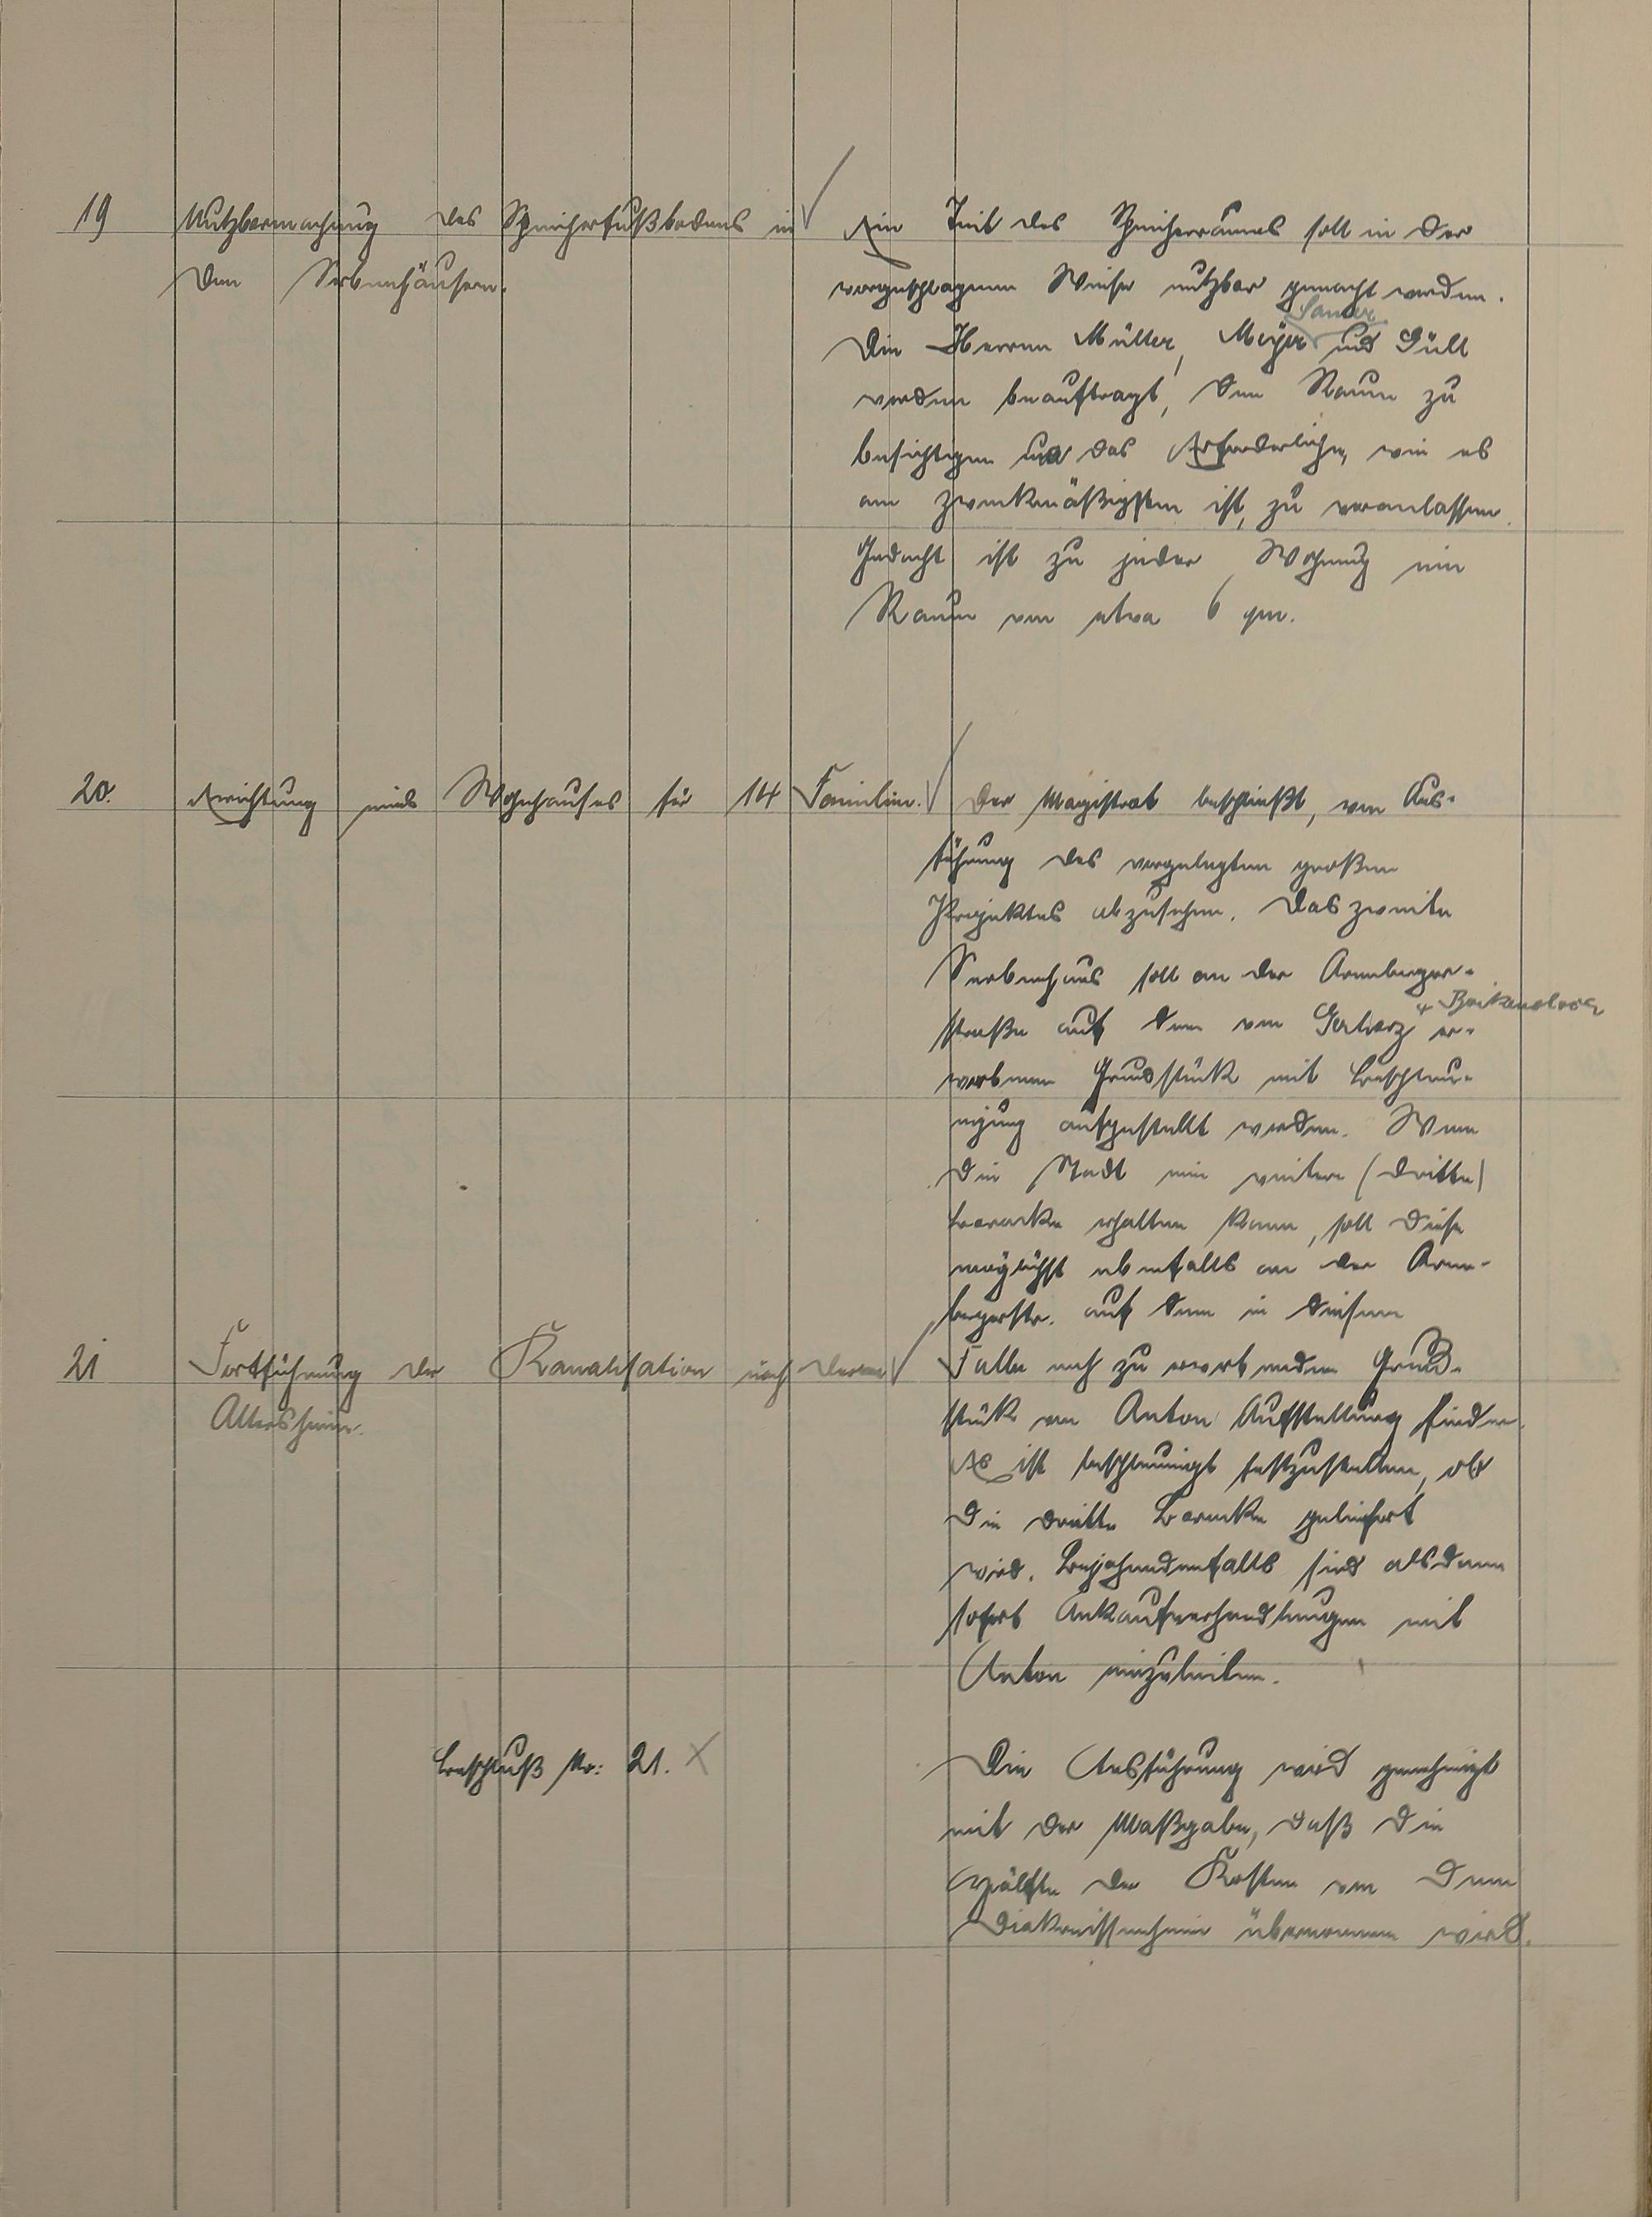 19 Nutzbarmachung des Speicherfußbodens in
den Serbenhäusern.
Ein Teil des Speicherraumes soll in der
vorgeschlagenen Weise nutzbar gemacht werden.
Sauer
Die Herren Müller, Meyer und Güll
werden beauftragt, den Raum zu
besichtigen und das Erforderliche, wie es
am zweckmäßigsten ist, zu veranlassen.
Gedacht ist zu jeder Wohnung ein
Raum von etwa 6 qm.
20. Errichtung eines Wohnhauses für 14 Familien.
Der Magistrat beschließt, von Aus-
führung des vorgelegten großen
Projektes abzusehen. Das zweite
Serbenhaus soll an der Arenberger-
straße auf dem von Gerharz er-
worbenen Grundstück mit Beschleu-
nigung aufgestellt werden. Wenn
die Stadt eine weitere (dritte)
Baracke erhalten kann, soll diese
möglichst ebenfalls an der Aren-
bergerstr. auf dem in diesem
21 Fortführung der Kanalisation nach dem
Altersheim.
Falle noch zu erwerbenden Grund-
stück von Anton Aufstellung finden.
Es ist beschleunigt festzustellen, ob
die dritte Baracke geliefert
wird. Bejahendenfalls sind alsdann
sofort Ankaufverhandlungen mit
Anton einzuleiten.
Beschluß Nr: 21. X
Die Ausführung wird genehmigt
mit der Maßgabe, daß die
Hälfte der Kosten von dem
Diakonissenheim übernommen wird.